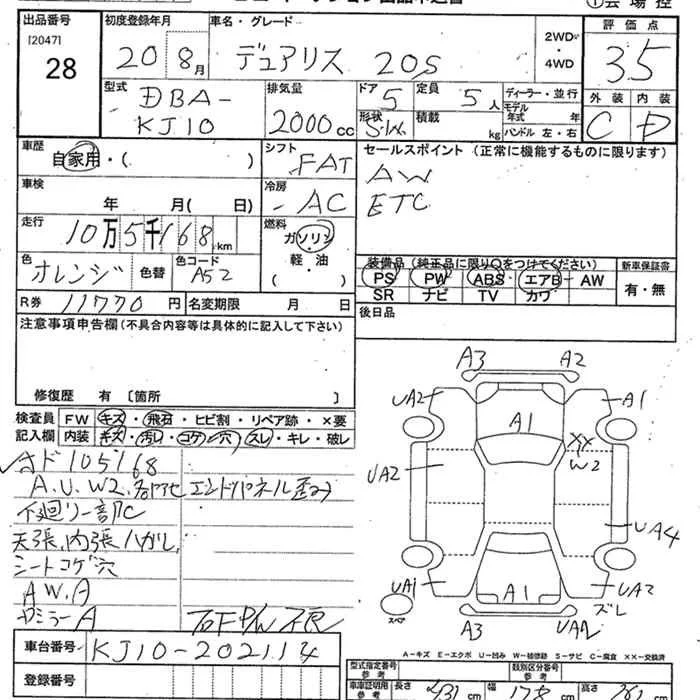 出品番号
[2047]
28
初度登録年月
20 8月
車名・グレード
デュアリス 20S
2WD
・
4WD
評価点
3.5
型式
DBA-
KJ10
排気量
2000cc
ドア
5
形状
S.W
定員
5人
積載
kg
ディーラー・並行
モデル年式 年
ハンドル 左・右
外装 内装
C D
車歴
自家用・( )
シフト
FAT
冷房
AC
セールスポイント (正常に機能するものに限ります)
AW
ETC
車検
年 月( 日)
走行
10万5千168km
燃料
ガソリン
・
軽・油
( )
色
オレンジ
色替
色コード
A52
装備品(純正品に限り○をつけてください)
PS PW ABS エアB AW
SR ナビ TV カワ
新車保証書
有・無
R券 11770円
名変期限 月 日
後日品
注意事項申告欄(不具合内容等は具体的に記入して下さい)
修復歴 有 〔箇所 〕
検査員
記入欄
FW キズ・飛石・ヒビ割・リペア跡・×要
内装 キズ・汚レ・コゲ・穴・スレ・キレ・破レ
105168
A.U.W2.
エンドパネル歪み
下廻り一部C
天張、内張ハガレ
シートコゲ穴
A.W.A
ミラーA
車台番号 KJ10-202114
登録番号
A3 A2
UA2 A1
A1
XX
W2
UA2
UA4
UA1 A1 UA2
ズレ
スペア
A3 UA2
A-キズ E-エクボ U-凹み W-補修跡 S-サビ C-腐食 XX-交換済
型式指定番号
参考
類別区分番号
参考
車庫証明用
参考
長さ 431cm 幅 178cm 高さ cm